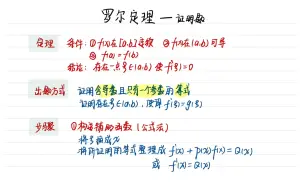 罗尔定理 — 证明题
定理 条件：① f(x)在[a,b]连续 ② f(x)在(a,b)可导
③ f(a)=f(b)
结论：存在一点ξ∈(a,b) 使f'(ξ)=0
出题方式 证明含导数且只有一个参数的等式
证明存在ξ∈(a,b)，使得f'(ξ)=g(ξ)
步骤 ①构造辅助函数（公式法）
将ξ换成x
将所证明的等式整理成 f'(x)+p(x)f(x)=Q(x)
或 f'(x)=Q(x)